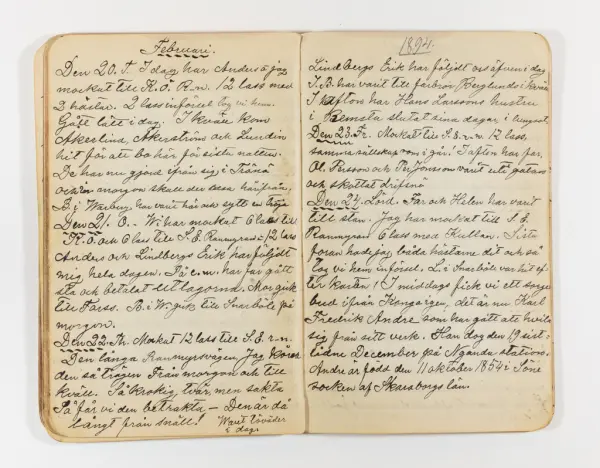 Februari.
Den 20. T. I dag har Anders o jag
morkat till K.Ö. R-n. 12 lass med
2 hästar. 2 lass införsel tog vi hem.
Gått lätt i dag. I kväll kom
Åkerlind, Åkerströms och Lundin
hit för att bo här för sista natten.
De har nu gjord ifrån sig i Tränö
och i morgon skall der resa härifrån.
B. i Warby har varit här och sytt en tröja
Den 21. O. - W. har morkat 6 lass till
K.Ö. och 6 lass till S.E. Rannygran = 12 lass
Anders och Lindbergs Erik har följdt
mig hela dagen. Fr. e.m. har far gått
sta och betalat utlagorna. Mor gick
till Farss. B. i W. gick till Snarböle på
morgon.
Den 22. Th. Morkat 12 lass till S.E. r-n.
Den långa Rannyrsvägen. Jag körer
den så trägen Från morgon och till
kväll. Så krokig, tvär, men sakta
Så får vi den betrakta — Den är då
långt från snäll! Warit töväder
i dag.
1894.
Lindbergs Erik har följdt oss äfven i dag
I.B. har varit till farbror Berglunds i kväll
I afton har Hans Larssons hustru
i Remsla slutat sina dagar i lungsot.
Den 23. Fr. Morkat till S.E. r-n. 12 lass,
samma sällskap som i går. I afton har far,
Ol. Persson och Per Jonsson varit ute på
och skottat drifsnö
Den 24. Lörd. Far och Helen har varit
till stan. Jag har morkat till S.E.
Rannygran 6 lass med Kullan. Sista
foran hade jag båda hästarne dit och så
tog vi hem införsel. L. i Snarböle var hit ef-
ter karten! I middags fick vi ett sorge-
bud ifrån Kongarigen, det är nu Karl
Fredrik Andre som har gått att hvila
sig från sitt verk. Han dog den 19 sist-
lidne December på Ngandu station.
Andre är född den 11 oktober 1854 i Söne
socken af Skaraborgs län.